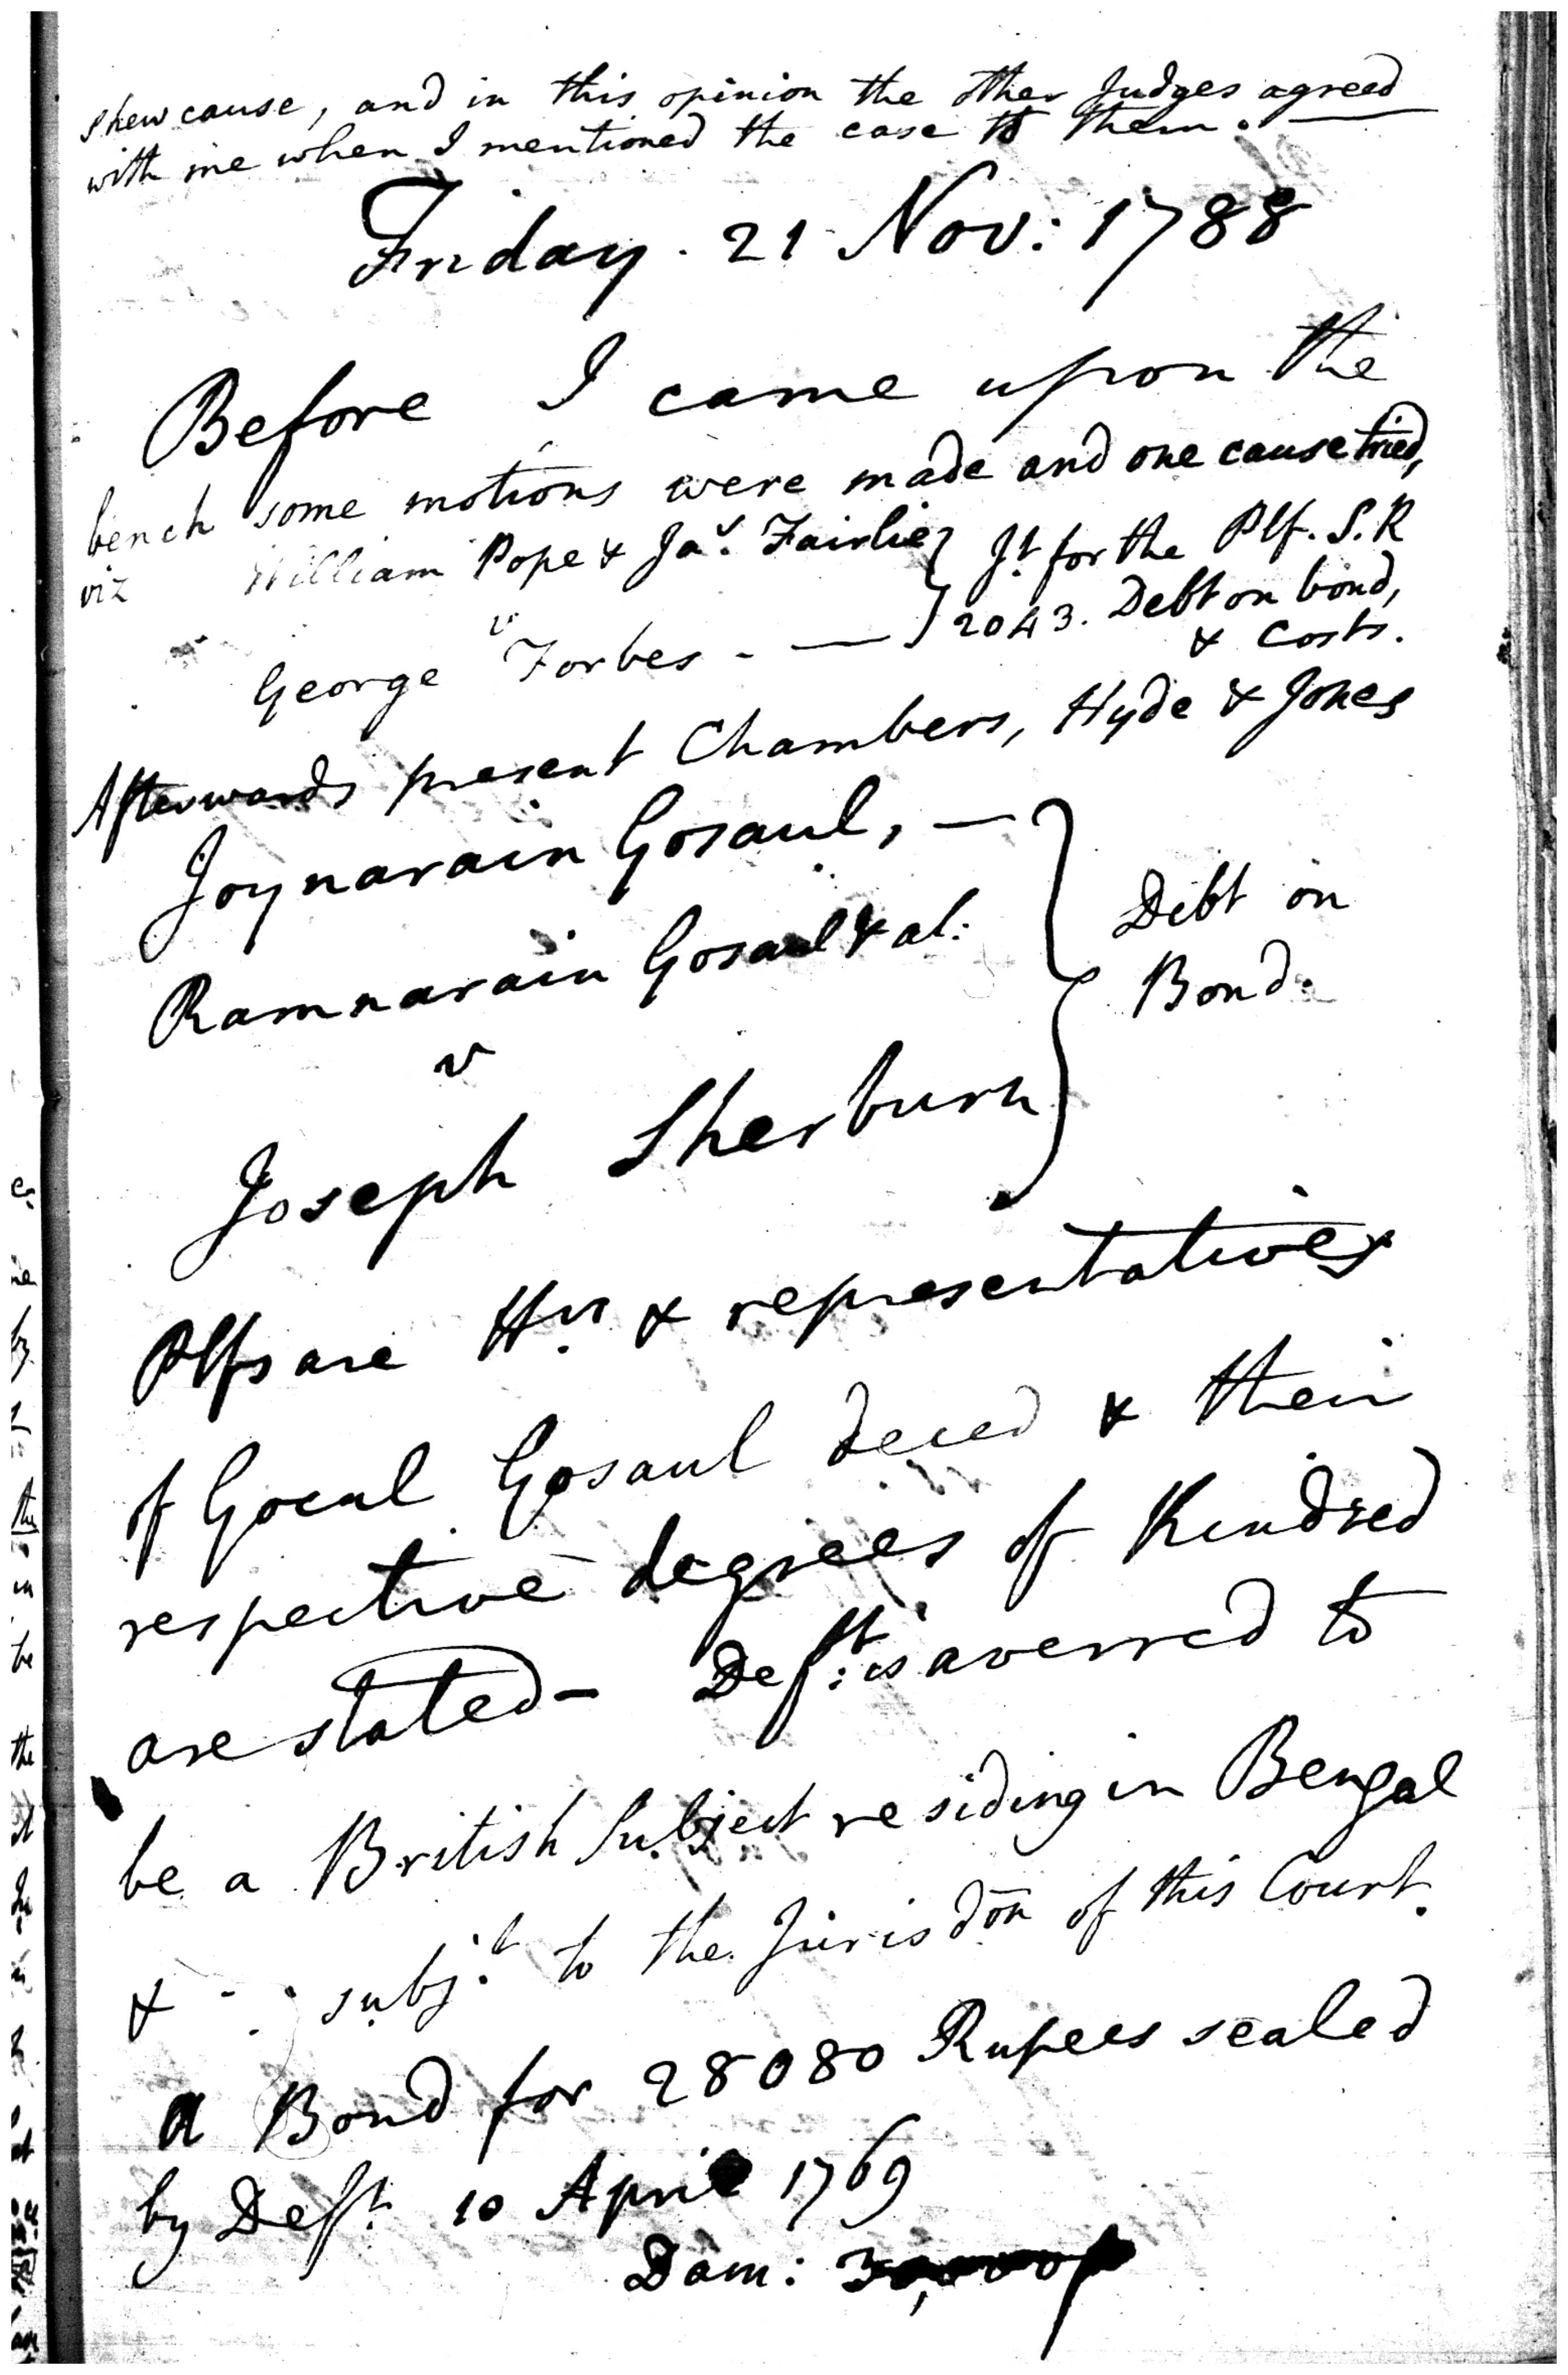 shew cause, and in this opinion the other Judges agreed
with me when I mentioned the case to them. —
Friday. 21 Nov: 1788
Before I came upon the
bench some motions were made and one cause tried,
viz William Pope & Jas. Fairlie } Jt. for the Plf. S.R
v
George Forbes - — } 2043. Debt on bond,
& Costs.
Afterwards present Chambers, Hyde & Jones
Joynarain Gosaul, —
Ramnarain Gosaul & al: } Debt on
Bond.
v
Joseph Sherburn
Plfs are Hrs. & representatives
of Gocul Gosaul deced & their
respective degrees of Kindred
are stated - Deft: is averred to
be a British Subject residing in Bengal
& - . subjt. to the Jurisdon of this Court.
A Bond for 28080 Rupees sealed
by Deft. 10 April 1769
Dam: